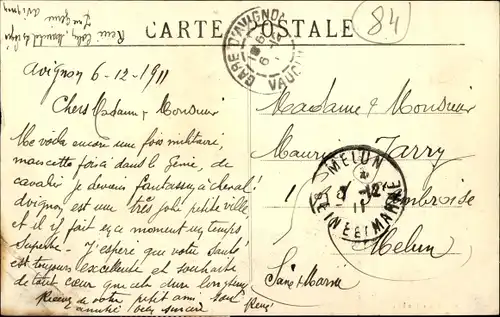 CARTE POSTALE
84
avignon
Génie
René
GARE D'AVIGNON
VAUCLUSE
6
Avignon 6-12-1911
Chers Madame & Monsieur
Me voila encore une fois militaire,
mais cette fois ci dans le Génie, de
cavalier je deviens fantassin, à cheval!
Avignon est une très jolie petite ville
et il fait en ce moment un temps
superbe - J'espère que votre santé
est toujours excellente et souhaite
de tout cœur que cela dure longtemps
Recevez de votre petit ami son
amitié bien sincère
René
Madame & Monsieur
Maurice Jarry
Ambroise
Melun
Seine & Marne
MELUN
SEINE ET MARNE
12
11